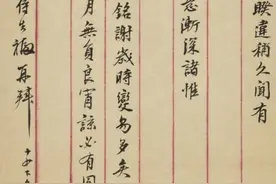 睽違稍久間有
忽漸深諸惟
銘謝歲時變易多矣
月無負良宵諒必有同
再拜